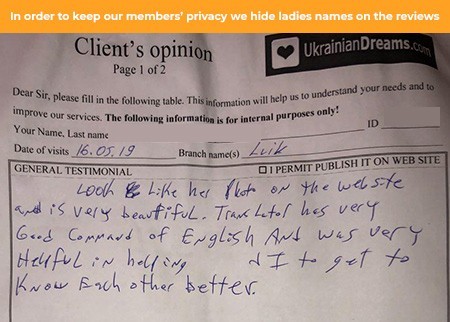 In order to keep our members' privacy we hide ladies names on the reviews
Client's opinion
Page 1 of 2
UkrainianDreams.com
Dear Sir, please fill in the following table. This information will help us to understand your needs and to
improve our services. The following information is for internal purposes only!
Your Name, Last name
ID
Date of visits 16.05.19 Branch name(s)
GENERAL TESTIMONIAL
I PERMIT PUBLISH IT ON WEB SITE
Look Like her Photo on the website
and is very beautiful. Translator has very
Good Command of English And was very
Helpful in helping d I to get to
Know Each other better.